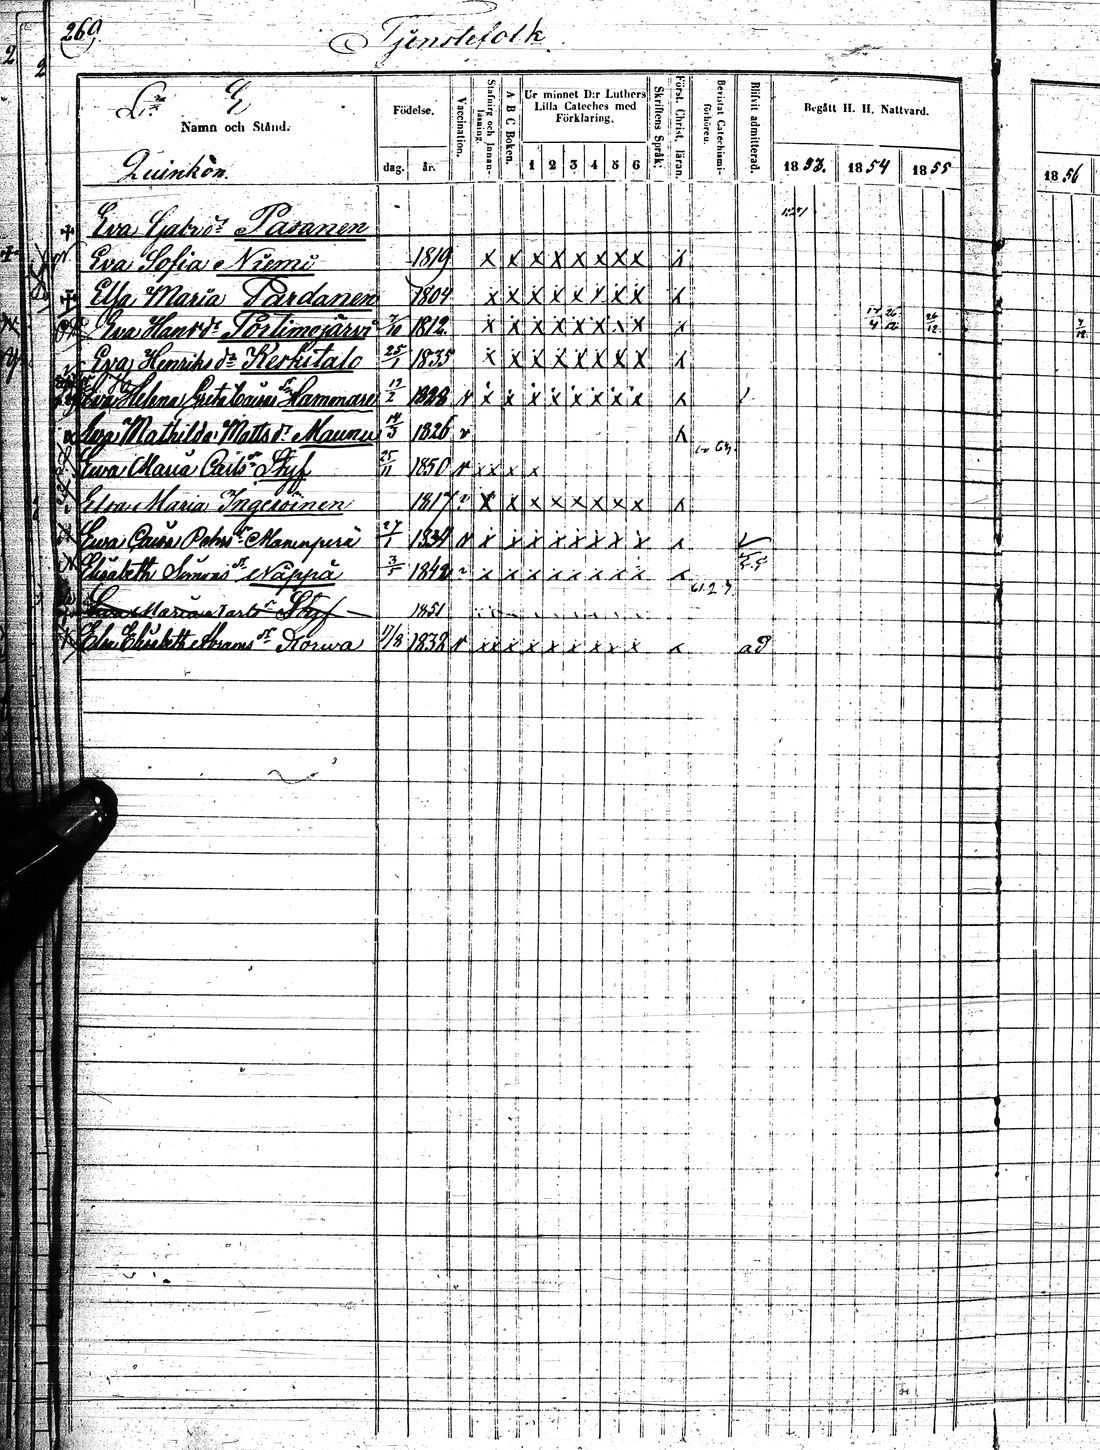 269
Tjenstefolk
Litt. E
Namn och Stånd.
Quinkön.
Födelse.
dag. år.
Vaccination.
Stafning och Innan-läsning.
A B C Boken.
Ur minnet D:r Luthers
Lilla Cateches med
Förklaring.
1 2 3 4 5 6
Skriftens Språk.
Först. Christ. läran.
Bevistat Catechismi-förhören.
Blifvit admitterad.
Begått H. H. Nattvard.
1853. 1854 1855
1856
Eva Gabrs dr Pasanen
Eva Sofia Niemi 1819 x x x x x x x x x
Elsa Maria Pardanen 1804 x x x x x x x x x
Eva Hansdr Portimojärvi 1812 x x x x x x x x x
Eva Henriksdr Kerkitalo 25/1 1835 x x x x x x x x x
Eva Helena Greta Caisas Hammare 1828 v x x x x x x x x x
Eva Mathilda Mattsdr Maunu 14/3 1826 v
Ewa Maria Carlsdr Styf 25/11 1850 v x x x x
Elsa Maria Ingeroinen 1817 x x x x x x x x x
Ewa Caisa Pehrsdr Manenperä 27/1 1834 v x x x x x x x x x
Elisabeth Simonsdr Näppä 3/5 1842 x x x x x x x x x
Ewa Maria Carlsdr Styf 1851
Elsa Elisabeth Abramsdr Korwa 17/8 1832 v xx x x x x x x x x ad